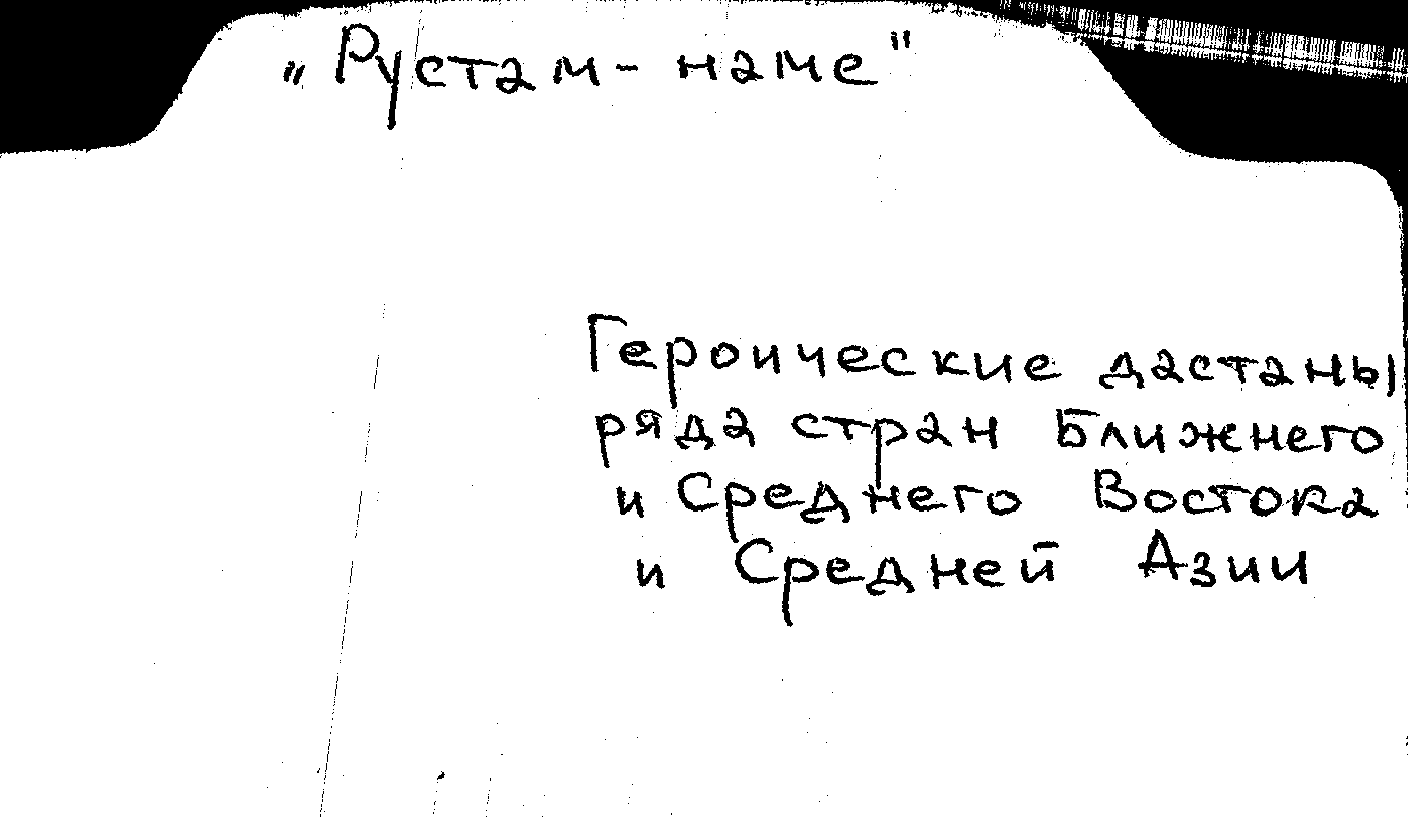 „Рустам-наме"
Героические дастаны
ряда стран Ближнего
и Среднего Востока
и Средней Азии